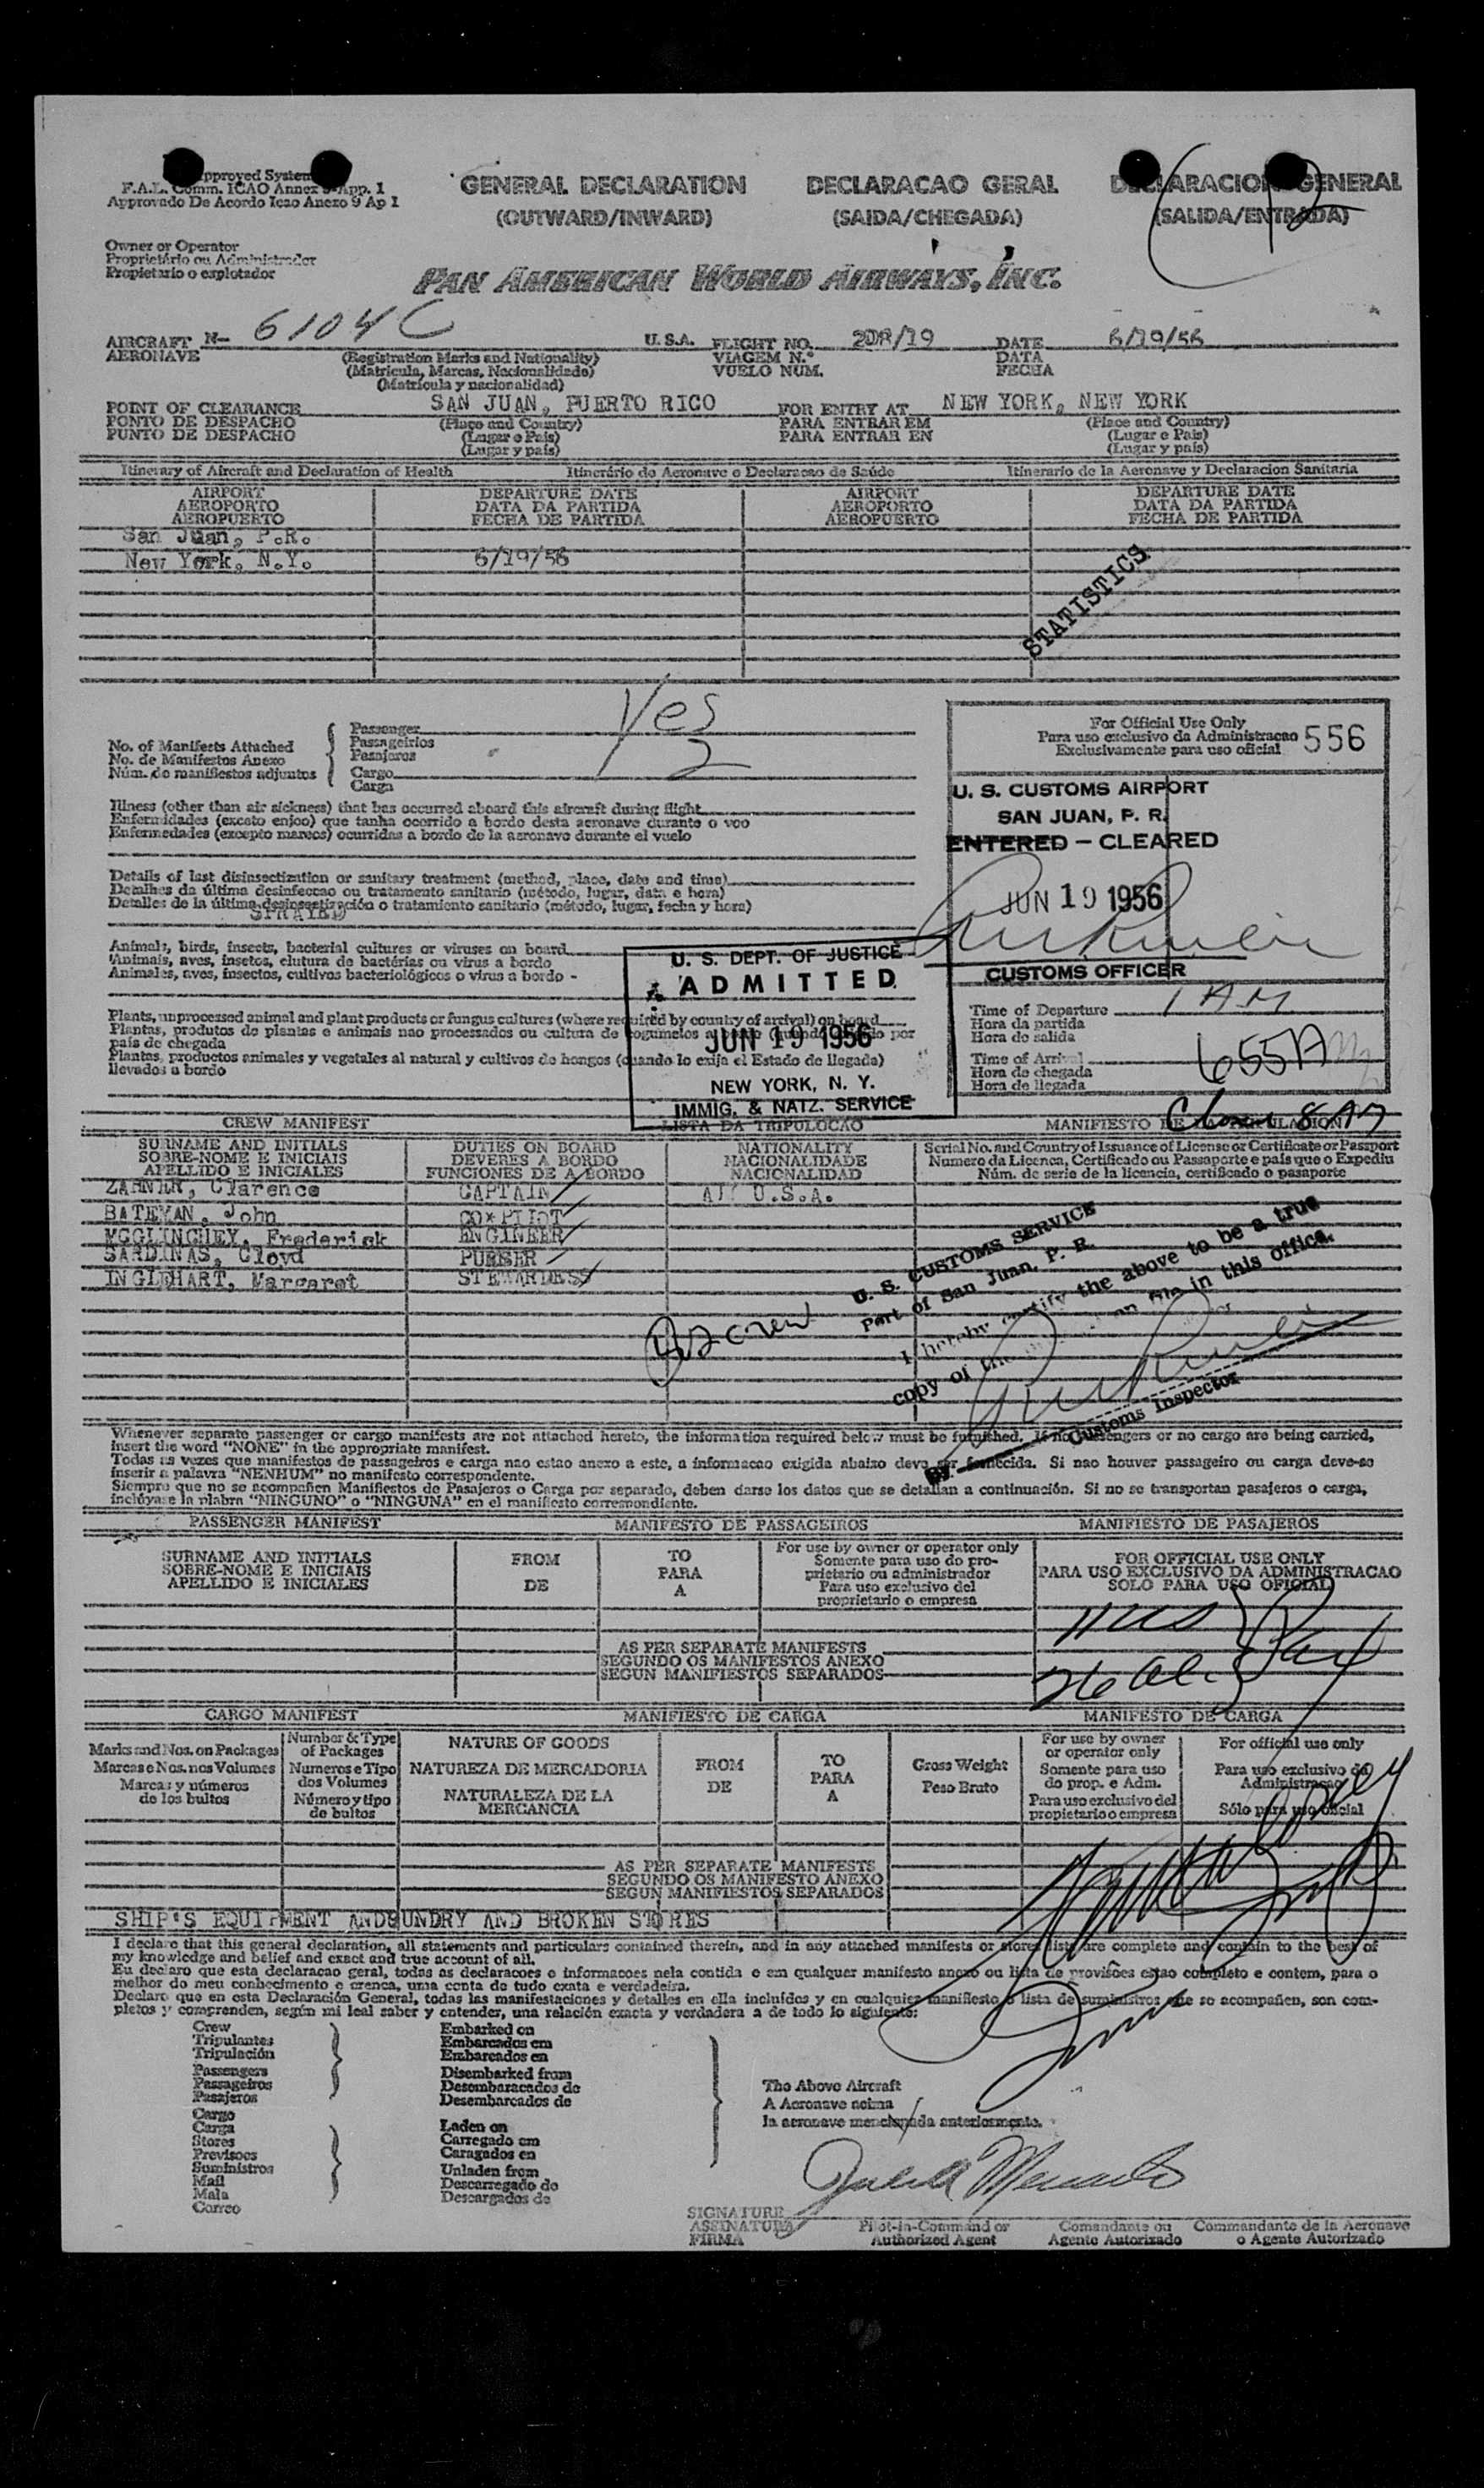 Approved System
F.A.L. Comm. ICAO Annex 9 App. 1
Approvado De Acordo Icao Anexo 9 Ap 1
GENERAL DECLARATION DECLARACAO GERAL DECLARACION GENERAL
(OUTWARD/INWARD) (SAIDA/CHEGADA) (SALIDA/ENTRADA)
Owner or Operator
Proprietário ou Administrador
Propietario o esplotador
PAN AMERICAN WORLD AIRWAYS, INC.
AIRCRAFT N- 6104C U.S.A. FLIGHT NO. 208/19 DATE 6/19/56
AERONAVE (Registration Marks and Nationality) VIAGEM N.° DATA
(Matricula, Marcas, Nacionalidade) VUELO NUM. FECHA
(Matrícula y nacionalidad)
POINT OF CLEARANCE SAN JUAN, PUERTO RICO FOR ENTRY AT NEW YORK, NEW YORK
PONTO DE DESPACHO (Place and Country) PARA ENTRAR EM (Place and Country)
PUNTO DE DESPACHO (Lugar e Pais) PARA ENTRAR EN (Lugar e Pais)
(Lugar y país) (Lugar y país)
Itinerary of Aircraft and Declaration of Health Itinerário do Aeronave e Declaracao de Saúde Itinerario de la Aeronave y Declaracion Sanitaria
AIRPORT DEPARTURE DATE AIRPORT DEPARTURE DATE
AEROPORTO DATA DA PARTIDA AEROPORTO DATA DA PARTIDA
AEROPUERTO FECHA DE PARTIDA AEROPUERTO FECHA DE PARTIDA
San Juan, P.R.
New York, N.Y. 6/19/56
STATISTICS
No. of Manifests Attached
No. de Manifestos Anexo
Núm. de manifiestos adjuntos
Passenger Yes
Passageirios
Pasajeros
Cargo 2
Carga
For Official Use Only
Para uso exclusivo da Administracao 556
Exclusivamente para uso oficial
U. S. CUSTOMS AIRPORT
SAN JUAN, P. R.
ENTERED – CLEARED
JUN 19 1956
CUSTOMS OFFICER
Illness (other than air sickness) that has occurred aboard this aircraft during flight
Enfermidades (exceto enjoo) que tanha ocorrido a bordo desta aeronave durante o voo
Enfermedades (excepto mareos) ocurridas a bordo de la aeronave durante el vuelo
Details of last disinsectization or sanitary treatment (method, place, date and time)
Detalhes da última desinfeccao ou tratamento sanitario (método, lugar, data e hora)
Detalles de la última desinsectización o tratamiento sanitario (método, lugar, fecha y hora)
SPRAYED
Animals, birds, insects, bacterial cultures or viruses on board
Animais, aves, insetos, clutura de bactérias ou virus a bordo
Animales, aves, insectos, cultivos bacteriológicos o virus a bordo -
U. S. DEPT. OF JUSTICE
ADMITTED
JUN 19 1956
NEW YORK, N. Y.
IMMIG. & NATZ. SERVICE
Plants, unprocessed animal and plant products or fungus cultures (where required by country of arrival) on board
Plantas, produtos de plantas e animais nao processados ou cultura de cogumelos a bordo (quando por
pais de chegada
Plantas, productos animales y vegetales al natural y cultivos de hongos (cuando lo exija el Estado de llegada)
llevados a bordo
Time of Departure 1 AM
Hora da partida
Hora de salida
Time of Arrival 655A
Hora de chegada
Hora de llegada
CREW MANIFEST LISTA DA TRIPULOCAO MANIFIESTO DE LA TRIPULACION
SURNAME AND INITIALS DUTIES ON BOARD NATIONALITY Serial No. and Country of Issuance of License or Certificate or Passport
SOBRE-NOME E INICIAIS DEVERES A BORDO NACIONALIDADE Numero da Licenca, Certificado ou Passaporte e pais que o Expediu
APELLIDO E INICIALES FUNCIONES DE A BORDO NACIONALIDAD Núm. de serie de la licencia, certificado o pasaporte
ZARNER, Clarence CAPTAIN All U.S.A.
BATEMAN, John CO*PILOT
MCGLINCHEY, Frederick ENGINEER
SARDINAS, Cloyd PURSER
INGLEHART, Margaret STEWARDESS
U. S. CUSTOMS SERVICE
Port of San Juan, P. R.
I hereby certify the above to be a true
copy of the on file in this office.
By
Customs Inspector
Whenever separate passenger or cargo manifests are not attached hereto, the information required below must be furnished. If no passengers or no cargo are being carried,
insert the word "NONE" in the appropriate manifest.
Todas as vezes que manifestos de passageiros e carga nao estao anexo a este, a informacao exigida abaixo deve ser fornecida. Si nao houver passageiro ou carga deve-se
inserir a palavra "NENHUM" no manifesto correspondente.
Siempre que no se acompañen Manifiestos de Pasajeros o Carga por separado, deben darse los datos que se detallan a continuación. Si no se transportan pasajeros o carga,
inclúyase la plabra "NINGUNO" o "NINGUNA" en el manifiesto correspondiente.
PASSENGER MANIFEST MANIFESTO DE PASSAGEIROS MANIFIESTO DE PASAJEROS
SURNAME AND INITIALS FROM TO For use by owner or operator only FOR OFFICIAL USE ONLY
SOBRE-NOME E INICIAIS DE PARA Somente para uso do pro- PARA USO EXCLUSIVO DA ADMINISTRACAO
APELLIDO E INICIALES A prietario ou administrador SOLO PARA USO OFICIAL
Para uso exclusivo del
proprietario o empresa
AS PER SEPARATE MANIFESTS
SEGUNDO OS MANIFESTOS ANEXO
SEGUN MANIFIESTOS SEPARADOS
CARGO MANIFEST MANIFIESTO DE CARGA MANIFESTO DE CARGA
Marks and Nos. on Packages Number & Type of Packages NATURE OF GOODS FROM TO Gross Weight For use by owner or operator only For official use only
Marcas e Nos. nos Volumes Numeros e Tipo dos Volumes NATUREZA DE MERCADORIA DE PARA Peso Bruto Somente para uso do prop. e Adm. Para uso exclusivo da Administracao
Marcas y números de los bultos Número y tipo de bultos NATURALEZA DE LA MERCANCIA A Para uso exclusivo del propietario o empresa Sólo para uso oficial
AS PER SEPARATE MANIFESTS
SEGUNDO OS MANIFESTO ANEXO
SEGUN MANIFIESTOS SEPARADOS
SHIP'S EQUIPMENT ANDSUNDRY AND BROKEN STORES
I declare that this general declaration, all statements and particulars contained therein, and in any attached manifests or stores lists are complete and contain to the best of
my knowledge and belief and exact and true account of all.
Eu declaro que esta declaracao geral, todas as declaracoes e informacoes nela contida e em qualquer manifesto anexo ou lista de provisões estao completo e contem, para o
melhor do meu conhecimento e crenca, uma conta de tudo exata e verdadeira.
Declaro que en esta Declaración General, todas las manifestaciones y detalles en ella incluídos y en cualquier manifiesto o lista de suministros que se acompañen, son com-
pletos y comprenden, según mi leal saber y entender, una relación exacta y verdadera a de todo lo siguiente:
Crew Embarked on
Tripulantes Embarcados em
Tripulación Embarcados en
Passengers Disembarked from
Passageiros Desembaracados de
Pasajeros Desembarcados de
The Above Aircraft
A Aeronave acima
la aeronave mencionada anteriormente.
Cargo
Carga Laden on
Stores Carregado em
Previsoes Caragados en
Suministros Unladen from
Mail Descarregado do
Mala Descargados de
Correo
SIGNATURE
ASSINATURA Pilot-in-Command or Comandante ou Commandante de la Aeronave
FIRMA Authorized Agent Agente Autorizado o Agente Autorizado